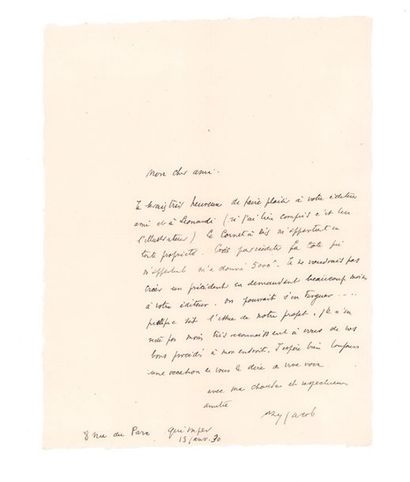 Mon cher ami.
Je serais très heureux de faire plaisir à votre éditeur
ami et à Leonardi (si j'ai bien compris c'est lui
l'illustrateur) le Cornet à dés m'appartient en
toute propriété. La Côte qui
m'appartient m'a donné 5000
créer un précédent en demandant beaucoup moins
à votre éditeur. on pourrait s'en targuer ....
soit l'issue de notre projet, je
pour moi très reconnaissant à de vos
bons procédés à mon endroit. J'espère bien toujours
une occasion de vous le dire de vive voix
avec ma chaude et respectueuse
amitié
Max Jacob
8 rue du Parc Quimper
15 janv. 30